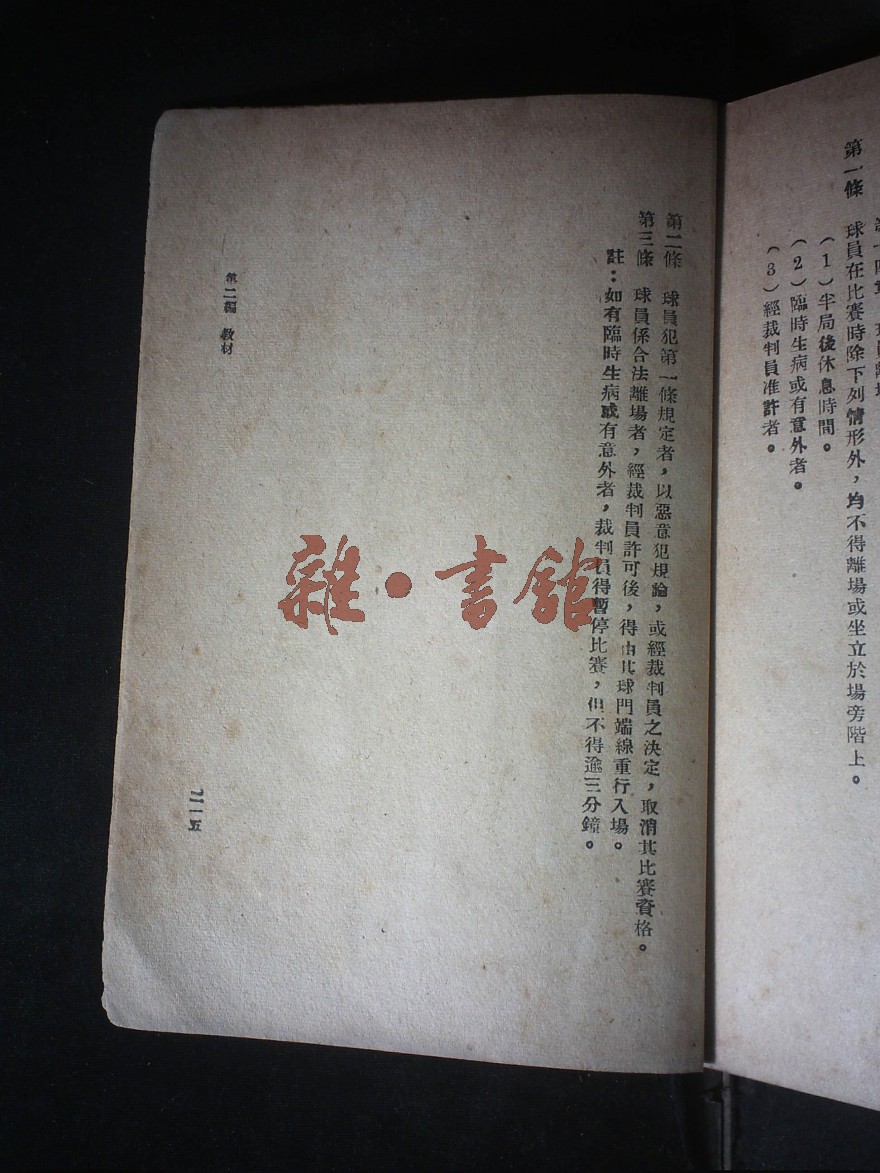 第一條　球員在比賽時除下列情形外，均不得離場或坐立於場旁階上。
（1）半局後休息時間。
（2）臨時生病或有意外者。
（3）經裁判員准許者。
第二條　球員犯第一條規定者，以惡意犯規論，或經裁判員之決定，取消其比賽資格。
第三條　球員係合法離場者，經裁判員許可後，得由其球門端線重行入場。
註：如有臨時生病或有意外者，裁判員得暫停比賽，但不得逾三分鐘。
第二編　教材
雜·書館